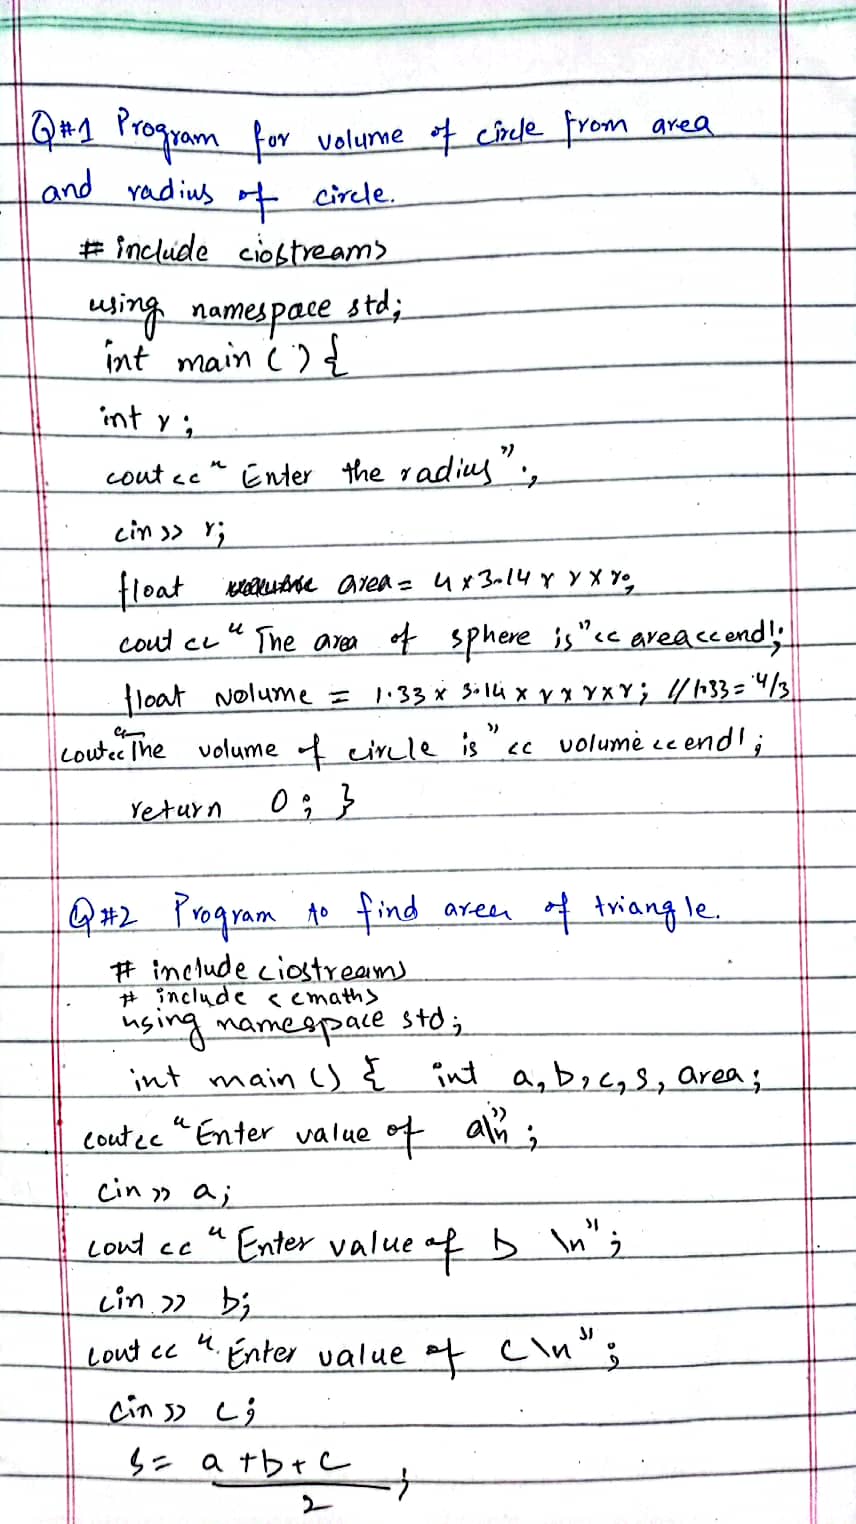 Q#1 Program for volume of circle from area
and radius of circle.
# include <iostream>
using namespace std;
int main () {
int r;
cout << " Enter the radius";
cin >> r;
float area = 4 x 3.14 x r x r;
cout << " The area of sphere is" << area << endl;
float Volume = 1.33 x 3.14 x r x r x r; // 1.33 = 4/3
cout << "The volume of circle is" << volume << endl;
return 0; }
Q#2 Program to find area of triangle.
# include <iostream>
# include <cmath>
using namespace std;
int main () { int a, b, c, s, area;
cout << "Enter value of a\n";
cin >> a;
cout << "Enter value of b \n";
cin >> b;
cout << " Enter value of c\n";
cin >> c;
s = a+b+c
2 ;